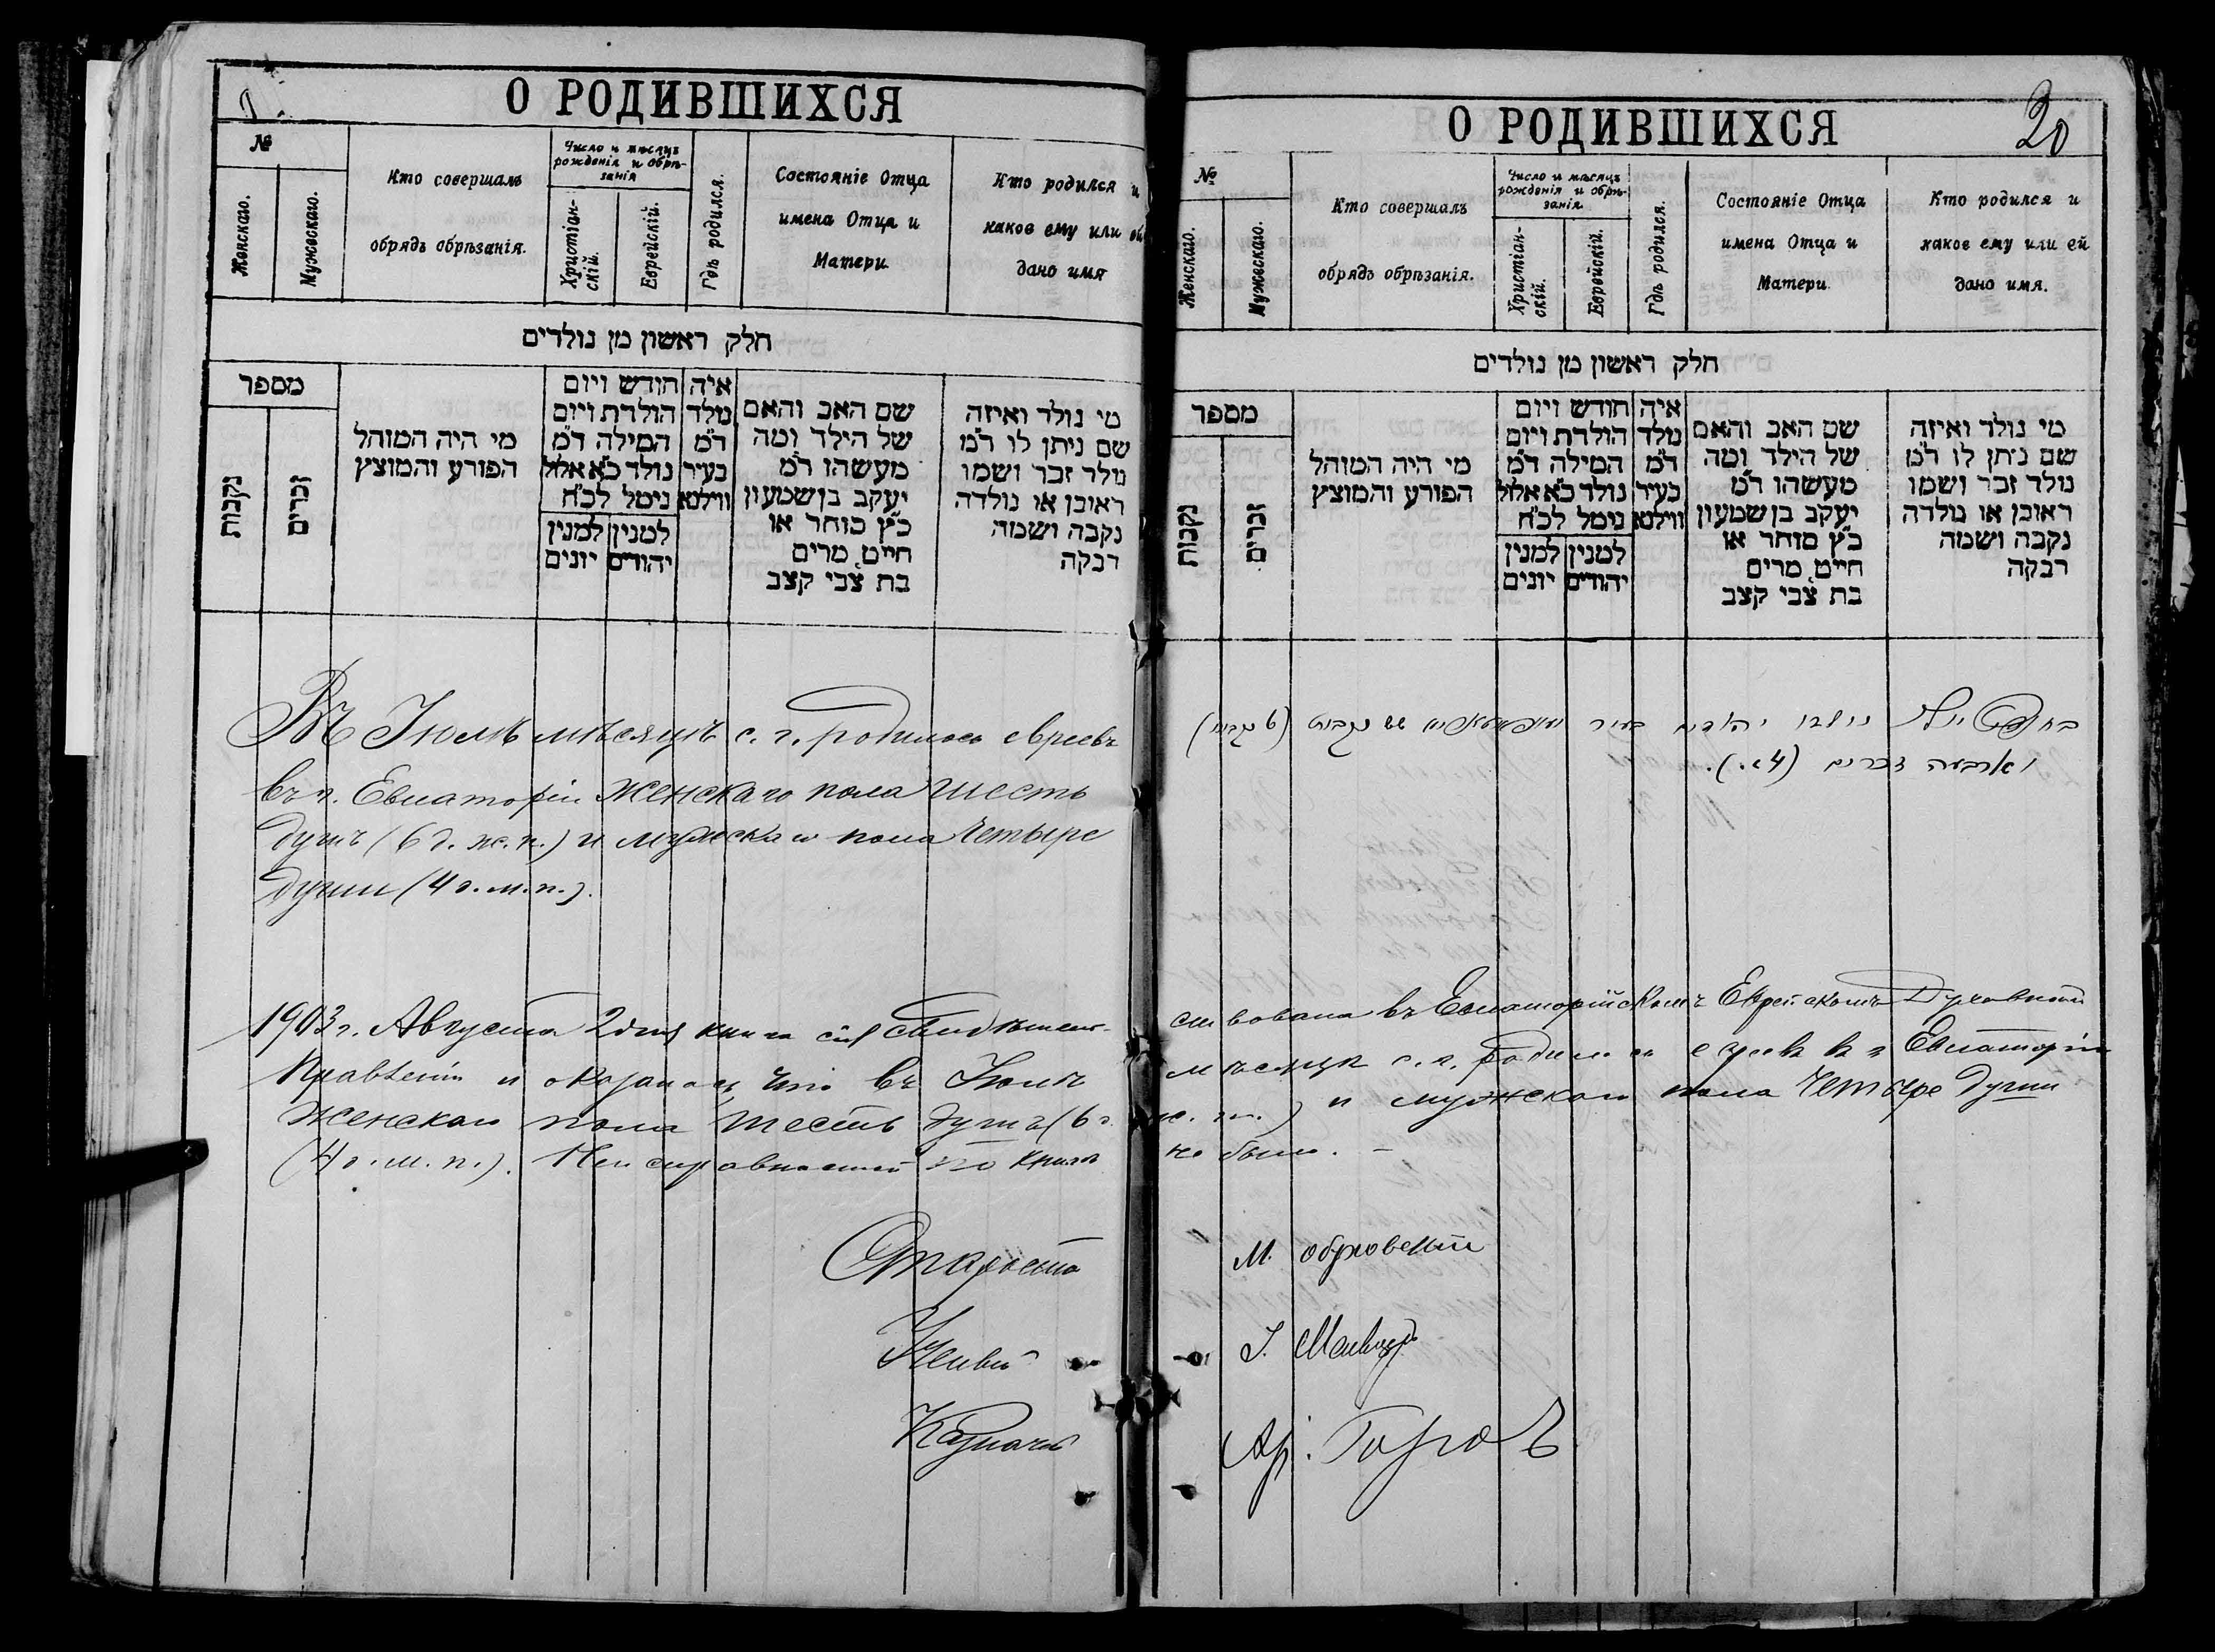 О РОДИВШИХСЯ
№
Женскаго.
Мужескаго.
Кто совершалъ
обрядъ обрѣзанія.
Число и мѣсяцъ
рожденія и обрѣ-
занія
Христіан-
скій.
Еврейскій.
Гдѣ родился.
Состояніе Отца
имена Отца и
Матери
Кто родился и
какое ему или ей
дано имя
חלק ראשון מן נולדים
מספר
נקבות
זכרים
מי היה המוהל
הפורע והמוצץ
חודש ויום
הולדת ויום
המילה ד״מ
נולד כ״א אלול
נימל לכ״ח
למנין למנין
יהודים יונים
איה
נולד
ד״מ
בעיר
ווילנא
שם האב והאם
של הילד ומה
מעשהו ד״מ
יעקב בן שמעון
כ״ץ סוחר או
חייט, מרים
בת צבי קצב
מי נולד ואיזה
שם ניתן לו ד״מ
נולד זכר ושמו
ראובן או נולדה
נקבה ושמה
רבקה
Въ Іюлѣ мѣсяцѣ с. г. родилось евреевъ
въ г. Евпаторіи женскаго пола шесть
душъ (6 д. ж. п.) и мужскаго пола четыре
души (4 д. м. п.).
1903 г. Августа 2 дня книга сія свидѣтель-
Правленіи и оказалось, что въ Іюлѣ
женскаго пола шесть душъ (6 д.
(4 д. м. п.). Неисправностей по книгѣ
Староста
Ученый
Казначей
О РОДИВШИХСЯ
20
№
Женскаго.
Мужескаго.
Кто совершалъ
обрядъ обрѣзанія.
Число и мѣсяцъ
рожденія и обрѣ-
занія
Христіан-
скій.
Еврейскій.
Гдѣ родился.
Состояніе Отца
имена Отца и
Матери
Кто родился и
какое ему или ей
дано имя.
חלק ראשון מן נולדים
מספר
נקבות
זכרים
מי היה המוהל
הפורע והמוצץ
חודש ויום
הולדת ויום
המילה ד״מ
נולד כ״א אלול
נימל לכ״ח
למנין למנין
יהודים יונים
איה
נולד
ד״מ
בעיר
ווילנא
שם האב והאם
של הילד ומה
מעשהו ד״מ
יעקב בן שמעון
כ״ץ סוחר או
חייט, מרים
בת צבי קצב
מי נולד ואיזה
שם ניתן לו ד״מ
נולד זכר ושמו
ראובן או נולדה
נקבה ושמה
רבקה
נולדו יהודים בעיר שש נקבות
וארבעה זכרים
ствована въ Евпаторійскомъ Еврейскомъ Духовномъ
мѣсяцѣ с. г. родилось евреевъ въ г. Евпаторіи
ж. п.) и мужскаго пола четыре души
не было. —
М.
І.